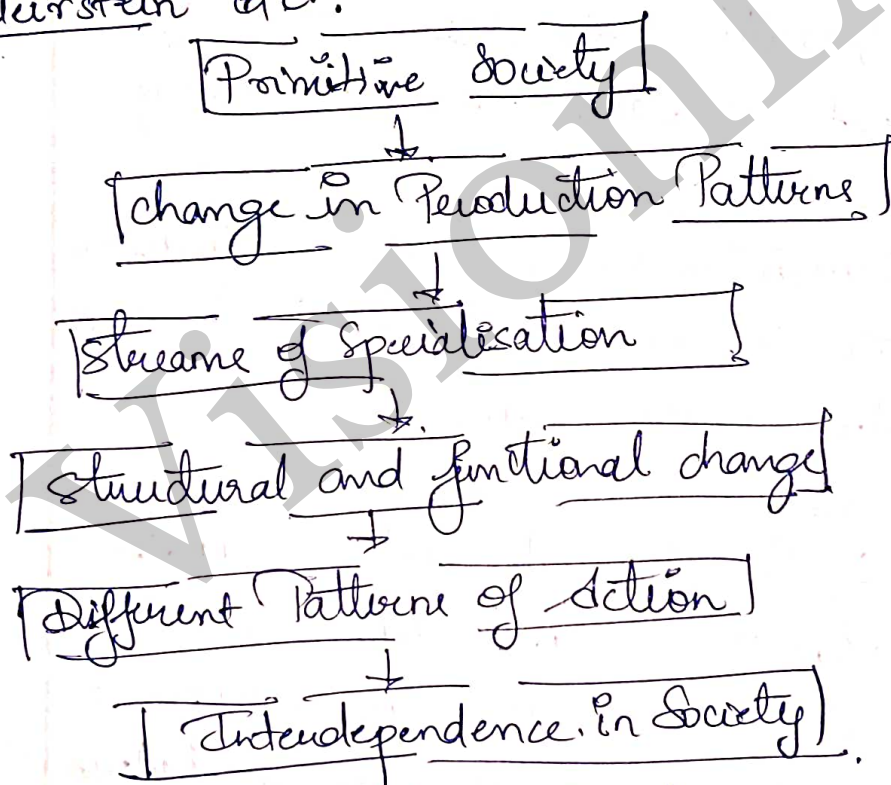 etc.
Primitive Society
change in Production Patterns
Streams of Specialisation
Structural and functional change
Different Patterns of Action
Interdependence in Society
Vision